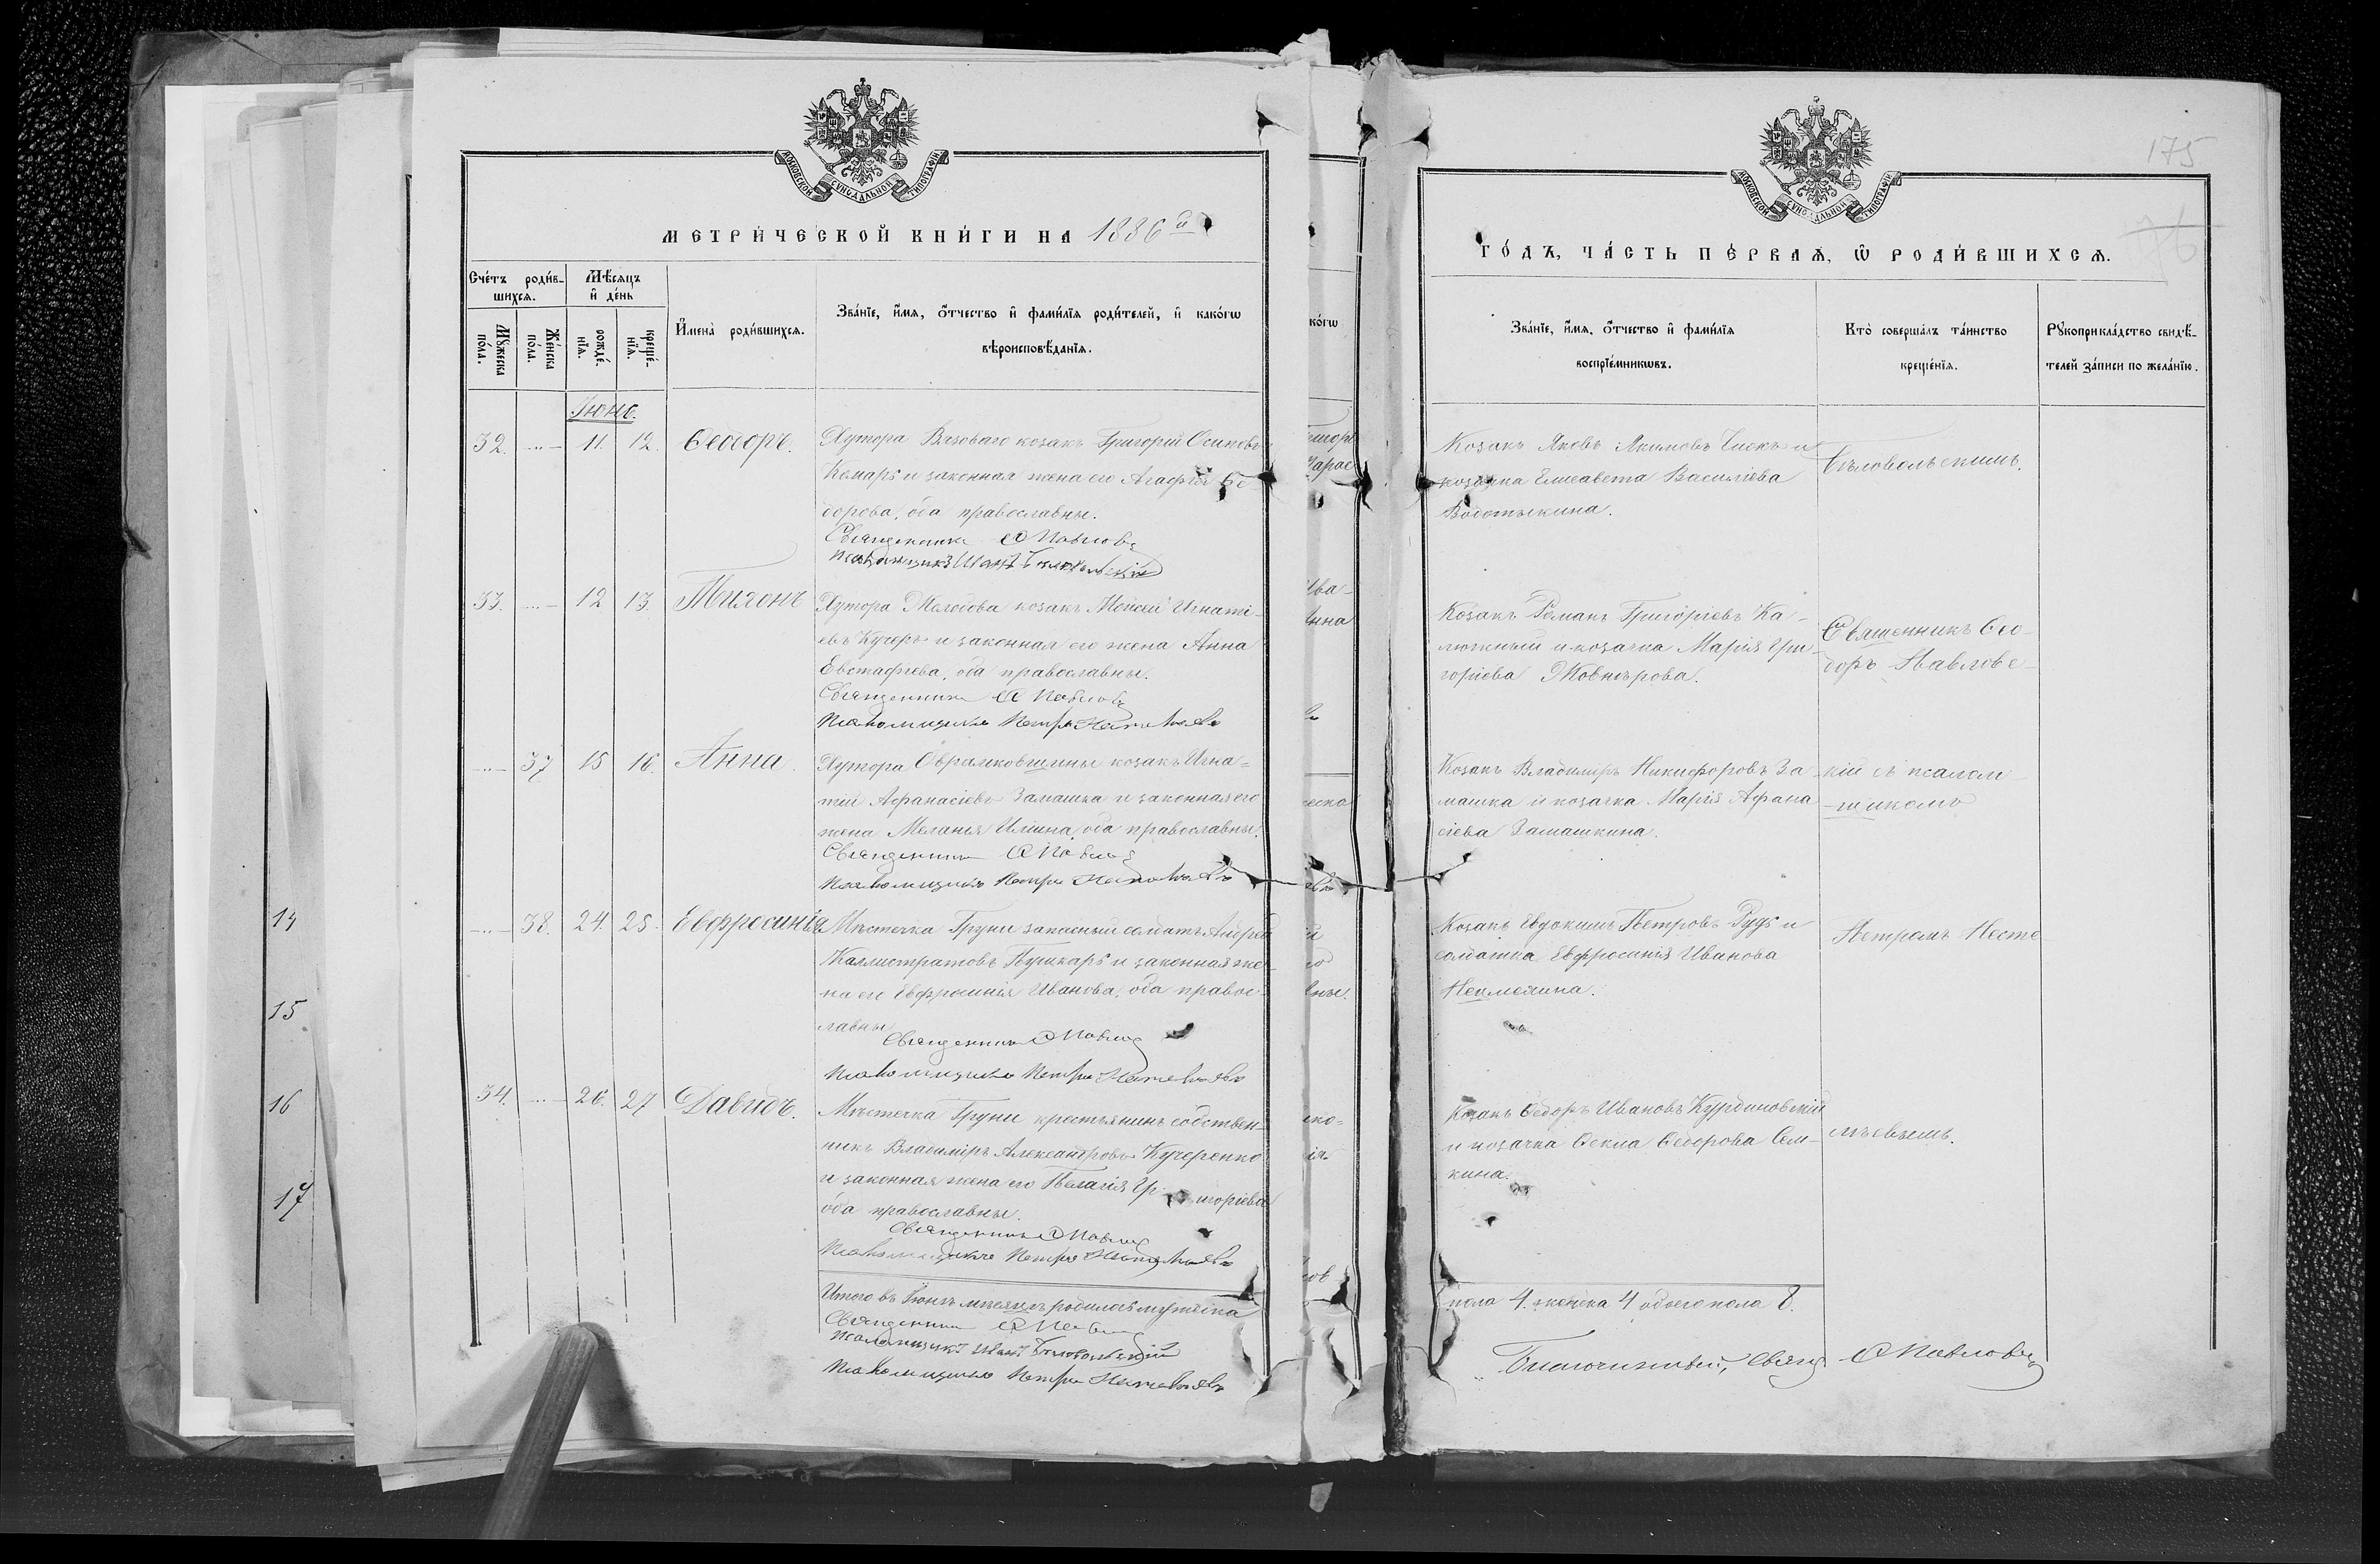 МОСКОВСКОЙ СѴНОДАЛЬНОЙ ТИПОГРАФІИ
МЕТРИ́ЧЕСКОЙ КНИ́ГИ НА 1886 й
Сче́тъ роди́в-
шихсѧ.
Мѣ́сѧцъ
и҆ де́нь
Мꙋ́жеска
по́ла.
Же́нска
по́ла.
рожде́-
нїѧ.
креще́-
нїѧ.
И҆мена̀ роди́вшихсѧ.
Зва́нїе, и҆́мѧ, ѻ҆́тчество и҆ фами́лїѧ роди́телей, и҆ како́гѡ
вѣроисповѣ́данїѧ.
Іюнь.
32. 11. 12. Ѳеодоръ.
Хутора Вязоваго козакъ Григорій Осиповъ
Комаръ и законная жена его Агафія Ѳе
дорова, оба православны.
Священникъ Ѳ Павловъ
Псаломщикъ Иванъ Бѣловольскій
33. 12 13. Тихонъ
Хутора Молодова козакъ Моисей Игнаті-
евъ Кучеръ и законная его жена Анна
Евстафіева, оба православны.
Священникъ Ѳ Павловъ
Псаломщикъ Петръ
37 15 16. Анна
Хутора Оврамковщины козакъ Игна=
тій Афанасіевъ Замашка и законная его
жена Меланія Иліина, оба православны.
Священникъ Ѳ Павловъ
Псаломщикъ Петръ
38. 24. 25. Евфросинія
Мѣстечка Груни запасный солдатъ Андрей
Каллистратовъ Пушкаръ и законная же-
на его Евфросинія Иванова, оба правос-
лавны
Священникъ Ѳ Павловъ
Псаломщикъ Петръ
34. 26. 27 Давидъ.
Мѣстечка Груни крестьянинъ собствен-
никъ Владиміръ Александровъ Кучеренко
и законная жена его Пелагія Гр игоріева
оба православны.
Священникъ Ѳ Павловъ
Псаломщикъ Петръ
Итого въ Іюнѣ мѣсяцѣ родилось мужеска
Священникъ Ѳ Павловъ
Псаломщикъ Иванъ Бѣловольскій
Псаломщикъ Петръ
14
15
16
17
175
МОСКОВСКОЙ СѴНОДАЛЬНОЙ ТИПОГРАФІИ
ГО́ДЪ, ЧА́СТЬ ПЕ́РВАѦ, Ѡ҆ РОДИ́ВШИХСѦ.
Зва́нїе, и҆́мѧ, ѻ҆́тчество и҆ фами́лїѧ
воспрїе́мникѡвъ.
Кто̀ соверша́лъ та́инство
креще́нїѧ.
Рꙋкоприкла́дство свидѣ́-
телей за́писи по жела́нїю.
Козакъ Яковъ Якимовъ и
козачка Елисавета Василіева
Водотыкина.
Бѣловольскимъ.
Козакъ Романъ Григоріевъ Ка-
люжный и козачка Марія Гри-
горіева Жовнѣрова.
Священникъ Ѳео-
доръ Павловс-
Козакъ Владиміръ Никифоровъ За
машка и козачка Марія Афана
сіева Замашкина.
кій съ псалом
-щикомъ
Козакъ Евдокимъ Петровъ Рудь и
солдатка Евфросинія Иванова
Петромъ Несте
Козакъ Ѳедоръ Ивановъ Курдиновскій
и козачка Ѳекла Ѳедорова Сем-
кина.
пола 4. женска 4 обоего пола 8.
Благочинный, Свящ Ѳ Павловъ